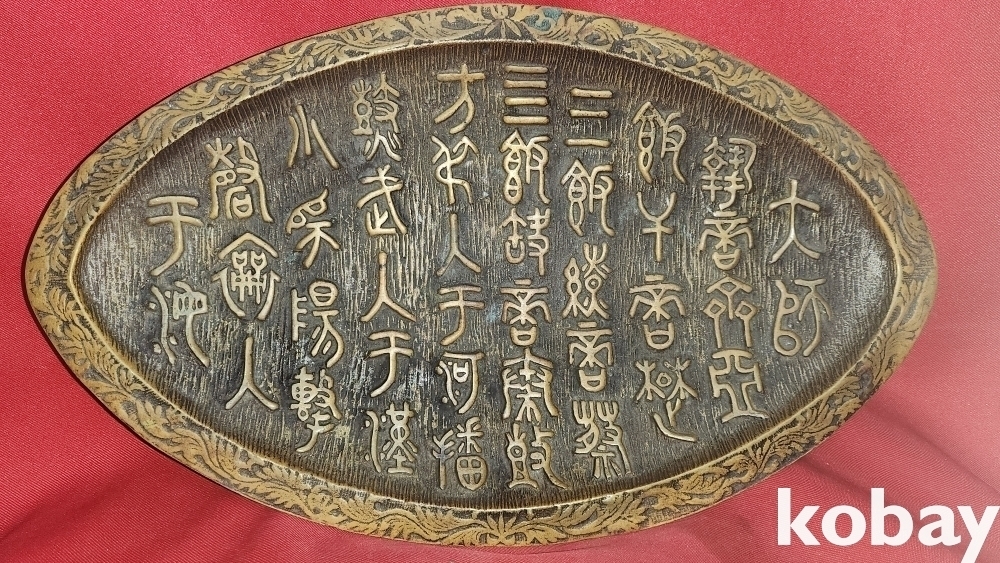 大師
摯適齊亞
飯干適楚
三飯繚適蔡
亖飯缺適秦鼓
方叔入于河播
鼗武入于漢
少師陽擊
磬襄入
于海
kobay